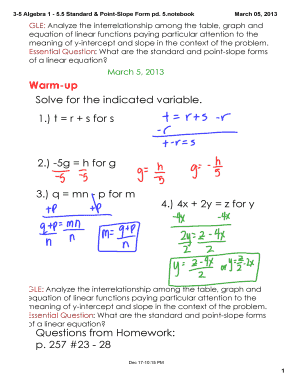 3-5 Algebra 1 - 5.5 Standard & Point-Slope Form pd. 5.notebook March 05, 2013
GLE: Analyze the interrelationship among the table, graph and
equation of linear functions paying particular attention to the
meaning of y-intercept and slope in the context of the problem.
Essential Question: What are the standard and point-slope forms
of a linear equation?
March 5, 2013
Warm-up
Solve for the indicated variable.
1.) t = r + s for s
t = r+s -r
-r
t-r=s
2.) -5g = h for g
-5 -5
g= h/-5
g= -h/5
3.) q = mn - p for m
+p +p
q+p = mn
n n
m= q+p/n
4.) 4x + 2y = z for y
-4x -4x
2y = z-4x
2 2
y = z-4x/2 or y=z/2-2x
GLE: Analyze the interrelationship among the table, graph, and
equation of linear functions paying particular attention to the
meaning of y-intercept and slope in the context of the problem.
Essential Question: What are the standard and point-slope forms
of a linear equation?
Questions from Homework:
p. 257 #23 - 28
Dec 17-10:16 PM
1